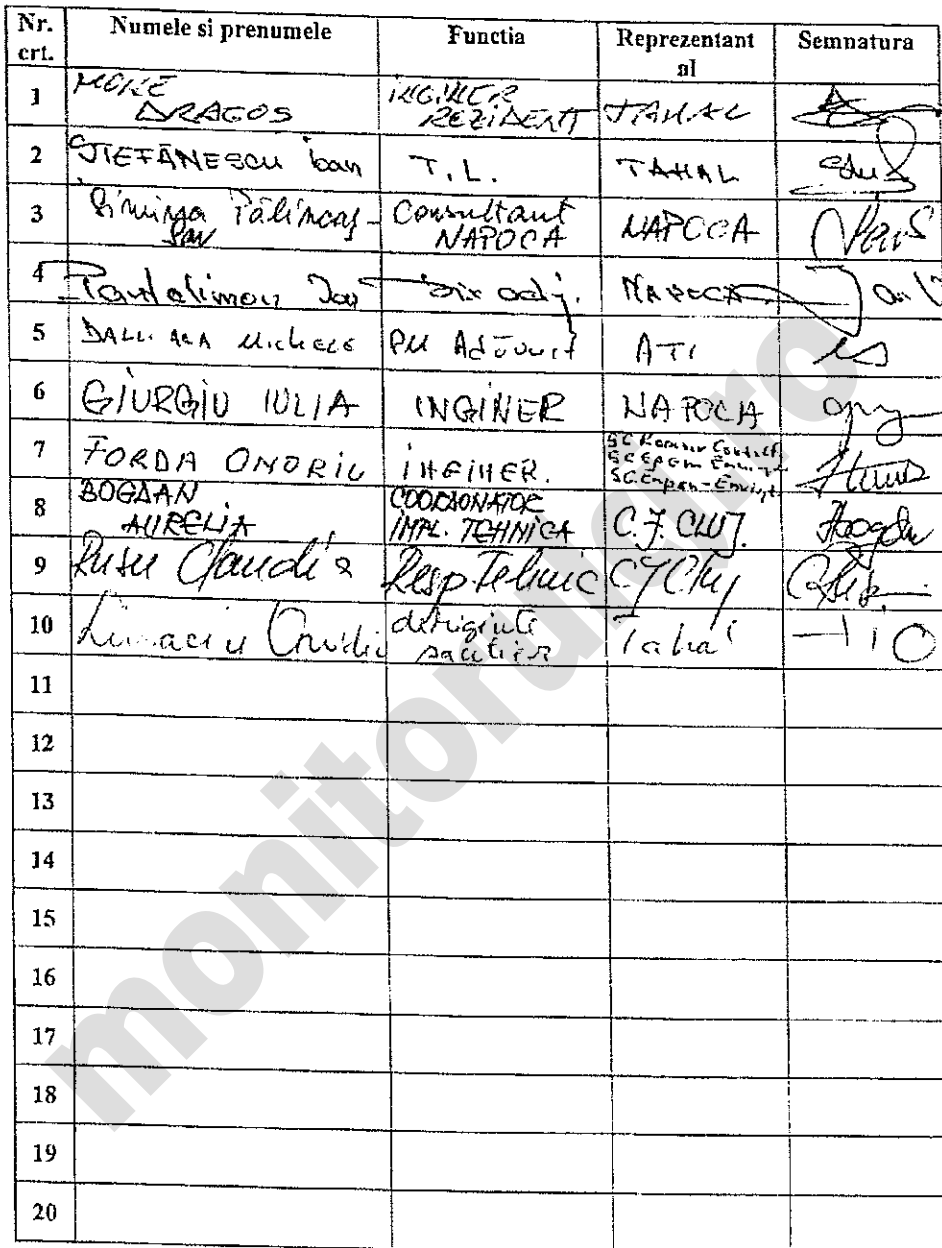 Nr. crt. Numele si prenumele Functia Reprezentant al Semnatura
1 DRAGOS INGINER REZIDENT TAHAL
2 STEFĂNESCU Ioan T.L. TAHAL
3 Simina Pălincaș- Consultant NAPOCA NAPOCA
4 Pantalimon Ioan adj. NAPOCA
5 Michele PM ATI
6 GIURGIU IULIA INGINER NAPOCA
7 FORDA ONORIU INGINER.
8 BOGDAN AURELIA COORDONATOR IMPL. TEHNICA C.J. CLUJ.
9 Rusu Claudia Resp Tehnic CJ Cluj
10 Ovidiu diriginte santier Tahal
11
12
13
14
15
16
17
18
19
20
monitorulcj.ro